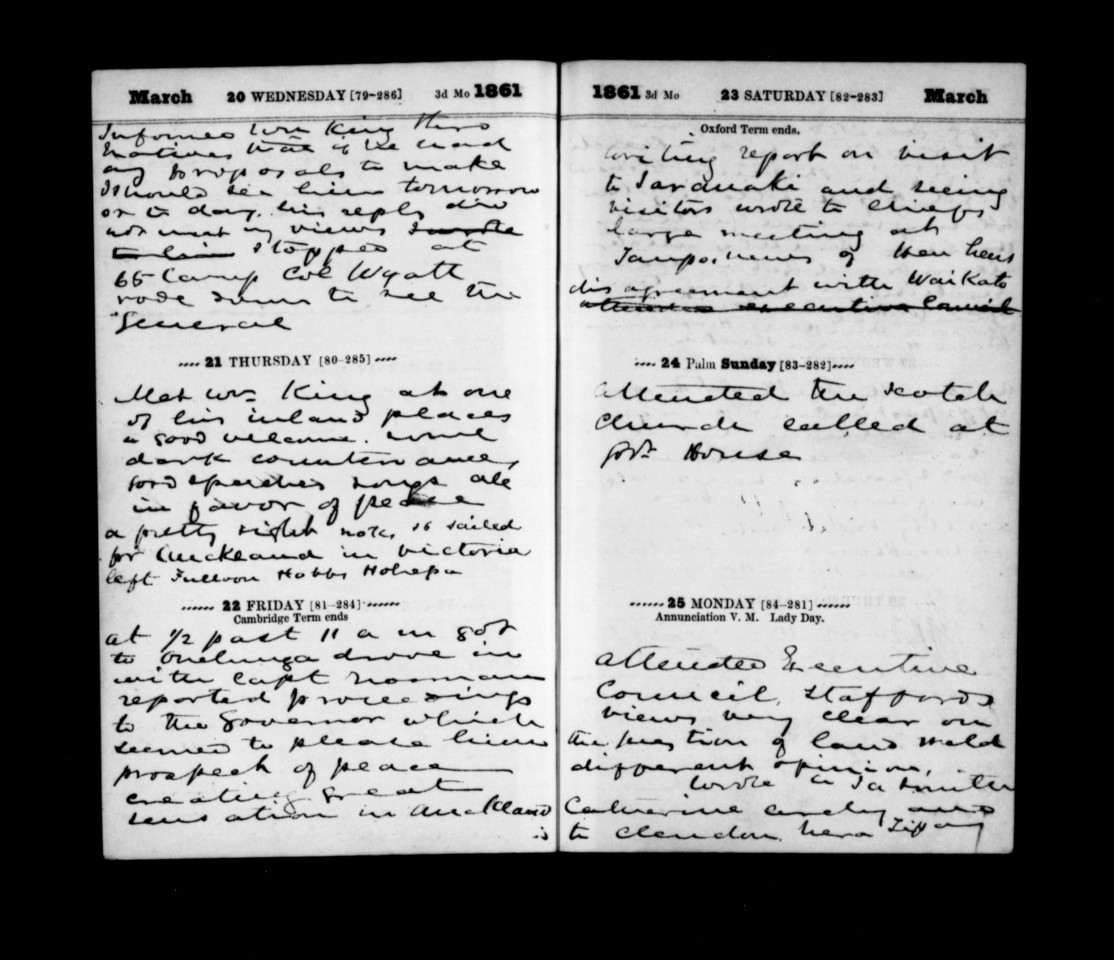 March 20 WEDNESDAY [79-286] 3d Mo 1861
Informed Wm King thro
natives that if he had
any proposals to make
I should see him tomorrow
or to day. his reply did
not meet my views I wrote
to him stopped at
65 Camp Col Wyatt
rode down to see the
General
21 THURSDAY [80-285]
Met Wm King at one
of his inland places
a good welcome. some
dark countenances
good speeches songs all
in favor of peace
a pretty sight note, 16 sailed
for Auckland in Victoria
left Fulloon Hobbs
22 FRIDAY [81-284]
Cambridge Term ends
at 1/2 past 11 a m got
to Onehunga drove in
with Capt Norman
reported proceedings
to the Governor which
seemed to please him
prospect of peace
creating great
sensation in Auckland
is
1861 3d Mo 23 SATURDAY [82-283] March
Oxford Term ends.
writing report on visit
to Taranaki and seeing
visitors wrote to Chiefs
large meeting at
Taupo. news of their
disagreement with Waikato
attended executive Council
24 Palm Sunday [83-282]
Attended the Scotch
Church called at
Govt House
25 MONDAY [84-281]
Annunciation V. M. Lady Day.
attended Executive
Council. Staffords
views very clear on
the question of land Weld
different opinion.
Wrote to Ta Smith
Catherine and
to Clendon.